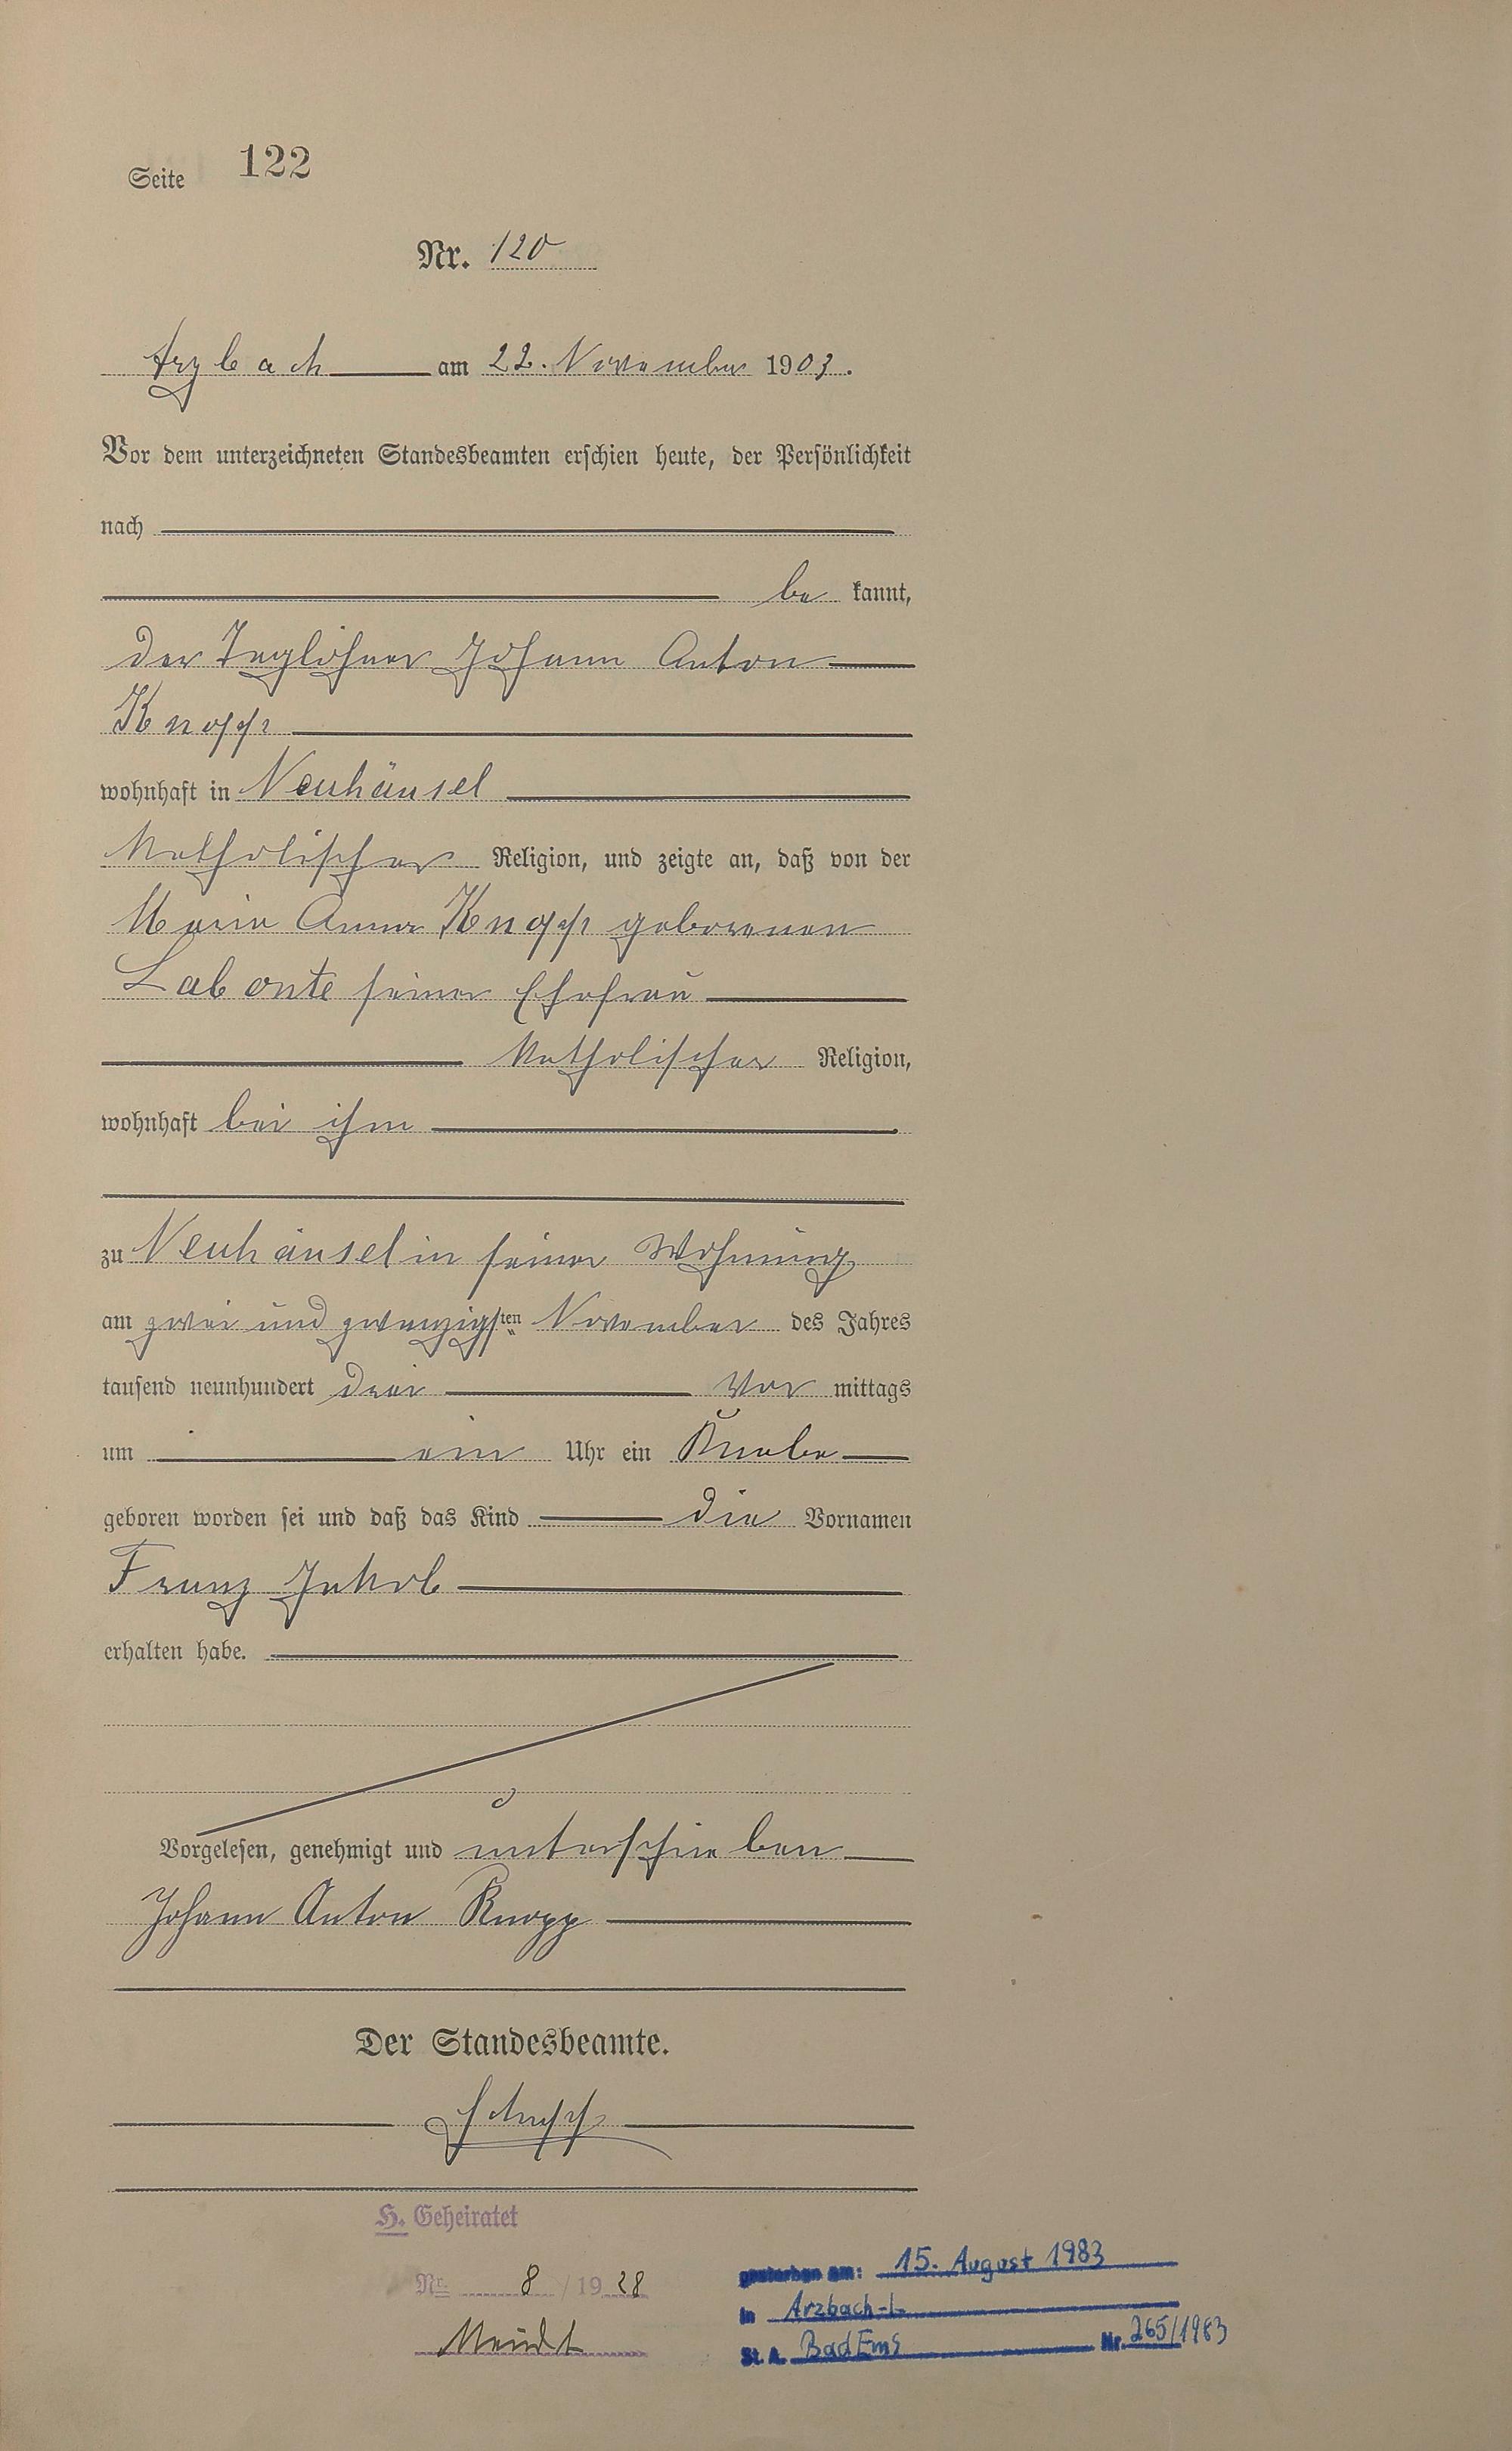 Seite 122
Nr. 120
Arzbach am 22. November 1903.
Vor dem unterzeichneten Standesbeamten erschien heute, der Persönlichkeit
nach
be kannt,
der Taglöhner Johann Anton
Knopp
wohnhaft in Neuhäusel
katholischer Religion, und zeigte an, daß von der
Maria Anna Knopp geborenen
Labonte seiner Ehefrau
katholischer Religion,
wohnhaft bei ihm
zu Neuhäusel in seiner Wohnung
am zwei und zwanzigsten November des Jahres
tausend neunhundert drei Vor mittags
um ein Uhr ein Knabe
geboren worden sei und daß das Kind die Vornamen
Franz Jakob
erhalten habe.
Vorgelesen, genehmigt und unterschrieben
Johann Anton Knopp
Der Standesbeamte.
H. Geheiratet
Nr. 8 / 1928
Meudt
gestorben am: 15. August 1983
in Arzbach
St. A. Bad Ems Nr. 265/1983